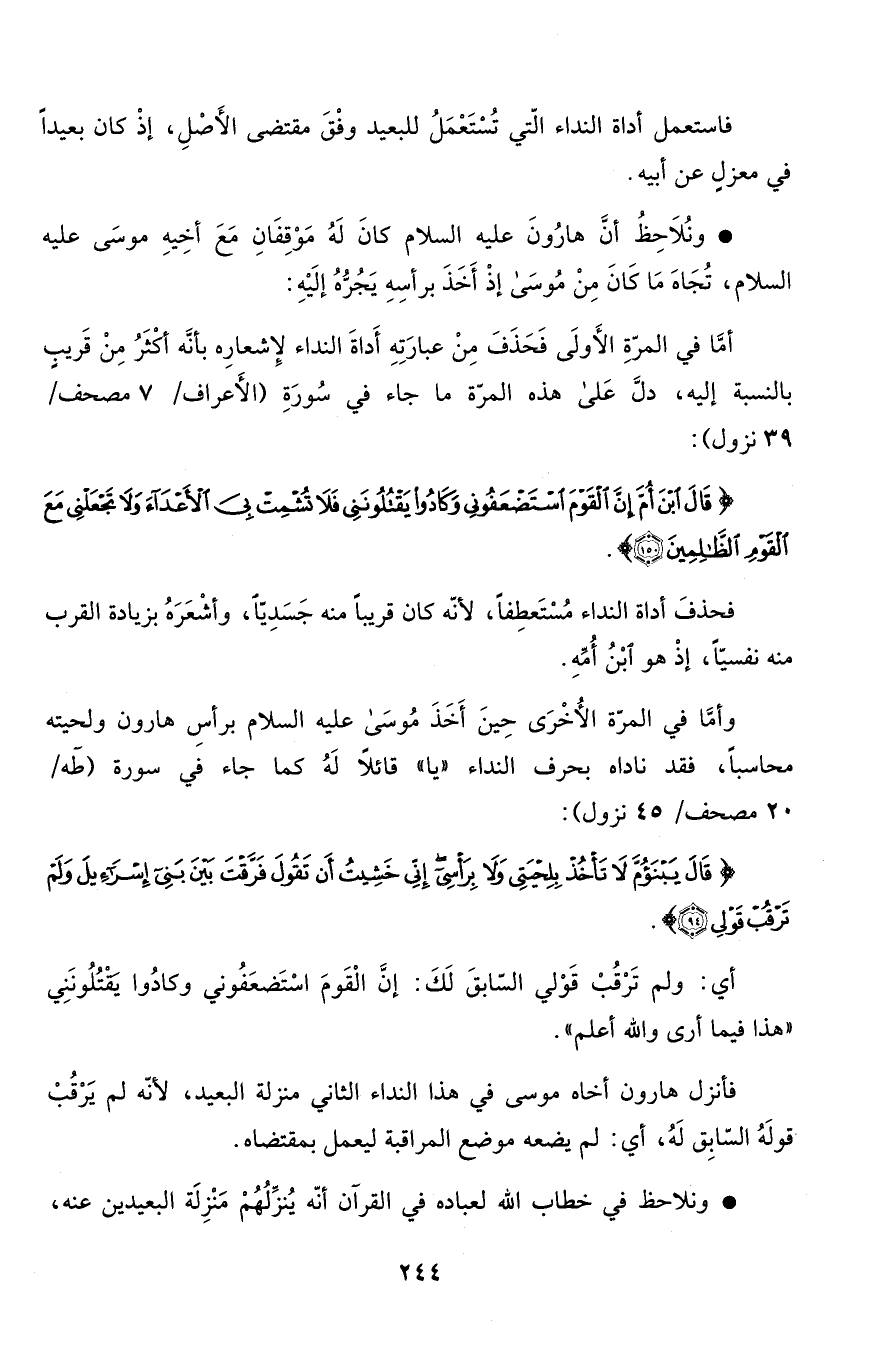 فاستعمل أداة النداء الّتي تُسْتَعْمَلُ للبعيد وفْقَ مقتضى الأَصْلِ، إذْ كان بعيداً
في معزلٍ عن أبيه.
● ونُلَاحِظُ أنَّ هارُونَ عليه السلام كانَ لَهُ مَوْقِفَانِ مَعَ أخِيهِ موسَى عليه
السلام، تُجَاهَ مَا كَانَ مِنْ مُوسَىٰ إذْ أَخَذَ برأسِهِ يَجُرُّهُ إلَيْهِ:
أمَّا في المرّةِ الأَولَى فَحَذَفَ مِنْ عبارَتِهِ أَداةَ النداء لإشعارِه بأنَّه أكْثَرُ مِنْ قَريبٍ
بالنسبة إليه، دلَّ عَلَىٰ هذه المرّة ما جاء في سُورَةِ (الأَعراف/ ٧ مصحف/
٣٩ نزول):
﴿ قَالَ ٱبْنَ أُمَّ إِنَّ ٱلْقَوْمَ ٱسْتَضْعَفُونِي وَكَادُوا۟ يَقْتُلُونَنِي فَلَا تُشْمِتْ بِيَ ٱلْأَعْدَآءَ وَلَا تَجْعَلْنِي مَعَ
ٱلْقَوْمِ ٱلظَّٰلِمِينَ ١٥٠﴾.
فحذفَ أداة النداء مُسْتَعطِفاً، لأنّه كان قريباً منه جَسَدِيّاً، وأشْعَرَهُ بزيادة القرب
منه نفسيّاً، إذْ هو ٱبْنُ أُمِّهِ.
وأمَّا في المرّة الأُخْرَى حِينَ أَخَذَ مُوسَىٰ عليه السلام برأسِ هارون ولحيته
محاسباً، فقد ناداه بحرف النداء «يا» قائلاً لَهُ كما جاء في سورة (طَه/
٢٠ مصحف/ ٤٥ نزول):
﴿ قَالَ يَبْنَؤُمَّ لَا تَأْخُذْ بِلِحْيَتِي وَلَا بِرَأْسِيٓ ۖ إِنِّي خَشِيتُ أَن تَقُولَ فَرَّقْتَ بَيْنَ بَنِيٓ إِسْرَٰٓءِيلَ وَلَمْ
تَرْقُبْ قَوْلِي ٩٤﴾.
أي: ولم تَرْقُبْ قَوْلي السّابقَ لَكَ: إنَّ الْقَومَ اسْتَضعَفُوني وكادُوا يَقْتُلُونَنِي
«هذا فيما أرى والله أعلم».
فأنزل هارون أخاه موسى في هذا النداء الثاني منزلة البعيد، لأنّه لم يَرْقُبْ
قولَهُ السّابِق لَهُ، أي: لم يضعه موضع المراقبة ليعمل بمقتضاه.
● ونلاحظ في خطاب الله لعباده في القرآن أنّه يُنزِّلُهُمْ مَنْزِلَة البعيدين عنه،
٢٤٤